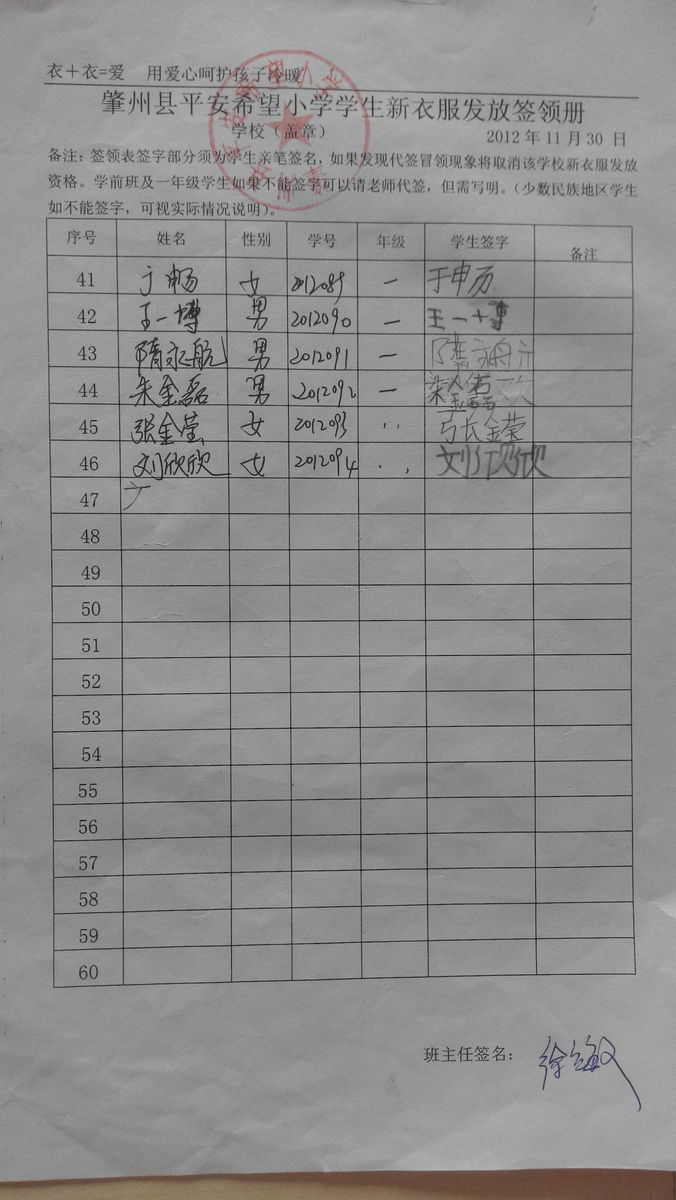 衣＋衣=爱 用爱心呵护孩子冷暖
肇州县平安希望小学学生新衣服发放签领册
学校（盖章）
2012 年 11 月 30 日
备注：签领表签字部分须为学生亲笔签名，如果发现代签冒领现象将取消该学校新衣服发放
资格。学前班及一年级学生如果不能签字可以请老师代签，但需写明。（少数民族地区学生
如不能签字，可视实际情况说明）。
序号 姓名 性别 学号 年级 学生签字 备注
41 于畅 女 2012089 一 于申历
42 王一博 男 2012090 一 王一十専
43 隋永航 男 2012091 一
44 朱金磊 男 2012092 一
45 张金莹 女 2012093 〃 张金莹
46 刘欣欣 女 2012094 〃 刘欣欣
47
48
49
50
51
52
53
54
55
56
57
58
59
60
班主任签名：